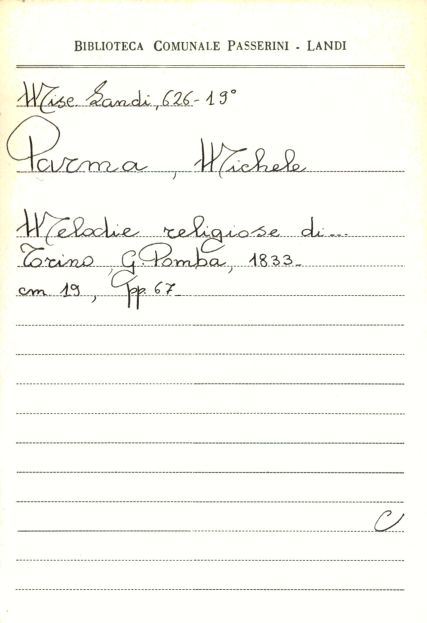 BIBLIOTECA COMUNALE PASSERINI - LANDI
Misc. Landi, 626-19°
Parma, Michele
Melodie religiose di...
Torino, G. Pomba, 1833.
cm 19, pp. 67
C